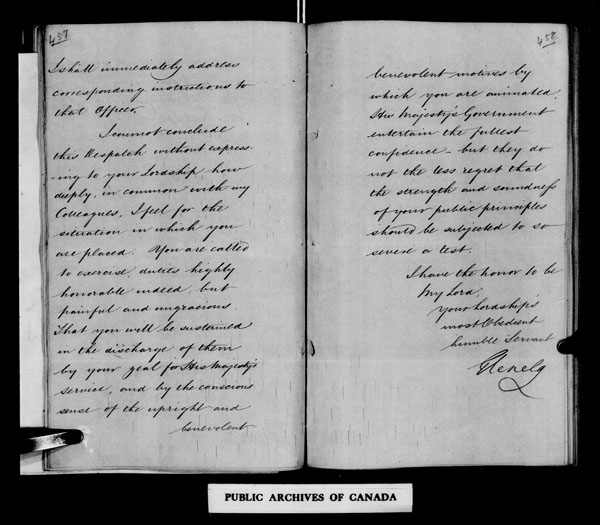 457
I shall immediately address
corresponding instructions to
that Officer.
I cannot conclude
this Despatch without express-
-ing to your Lordship, how
deeply, in common with my
Colleagues, I feel for the
situation in which you
are placed. You are called
to exercise duties highly
honorable indeed, but
painful and ungracious
That you will be sustained
in the discharge of them
by your zeal for His Majesty's
service, and by the conscious
sense of the upright and
benevolent
458
benevolent motives by
which you are animated,
His Majesty's Government
entertain the fullest
confidence - but they do
not the less regret that
the strength and soundness
of your public principles
should be subjected to so
severe a test.
I have the honor to be
My Lord,
Your Lordship's
most Obedient
humble Servant
Glenelg
PUBLIC ARCHIVES OF CANADA